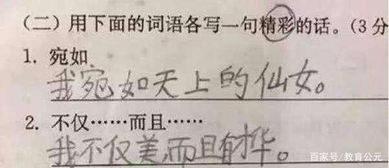 (二)用下面的词语各写一句精彩的话。(3分
1. 宛如
我宛如天上的仙女。
2. 不仅……而且……
我不仅美而且有才华。
百家号/教育公元